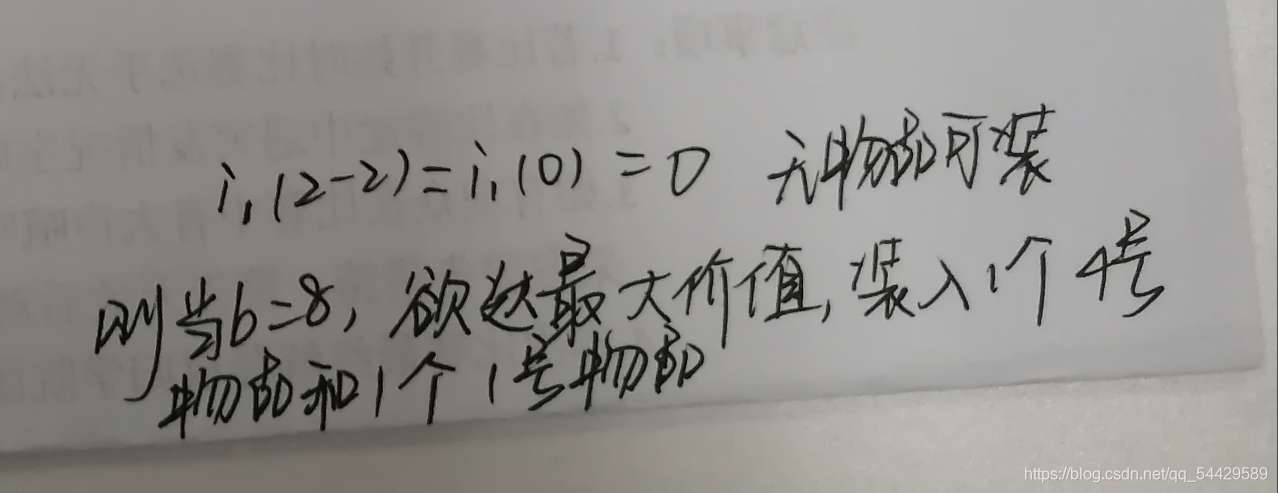 i₁(2-2)=i₁(0)=0 无物品可装
则当b=8,欲达最大价值,装入1个4号
物品和1个1号物品
https://blog.csdn.net/qq_54429589